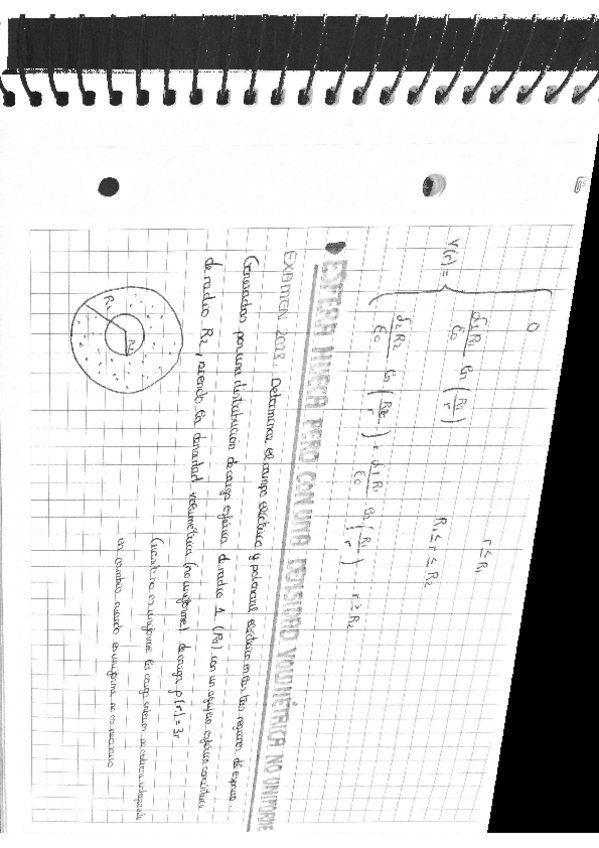 V(r) = { 0 r ≤ R₁
σ₁R₁/ε₀ ln (R₁/r) R₁ ≤ r ≤ R₂
σ₂R₂/ε₀ ln (R₂/r) + σ₁R₁/ε₀ ln (R₁/r) r ≥ R₂
ESFERA HUECA PERO CON UNA DENSIDAD VOLUMÉTRICA NO UNIFORME
EXAMEN 2018. Determinar el campo eléctrico y potencial eléctrico en las tres regiones de espacio
Generadas por una distribución de carga esférica de radio 1 (R₁) con un agujero esférico concéntrico
de radio R₂, siendo la densidad volumétrica (no uniforme) de carga ρ(r) = 3r
R₁
R₂
Cuando no es uniforme la carga interior se obtiene integrando
en cambio cuando es uniforme no es necesario